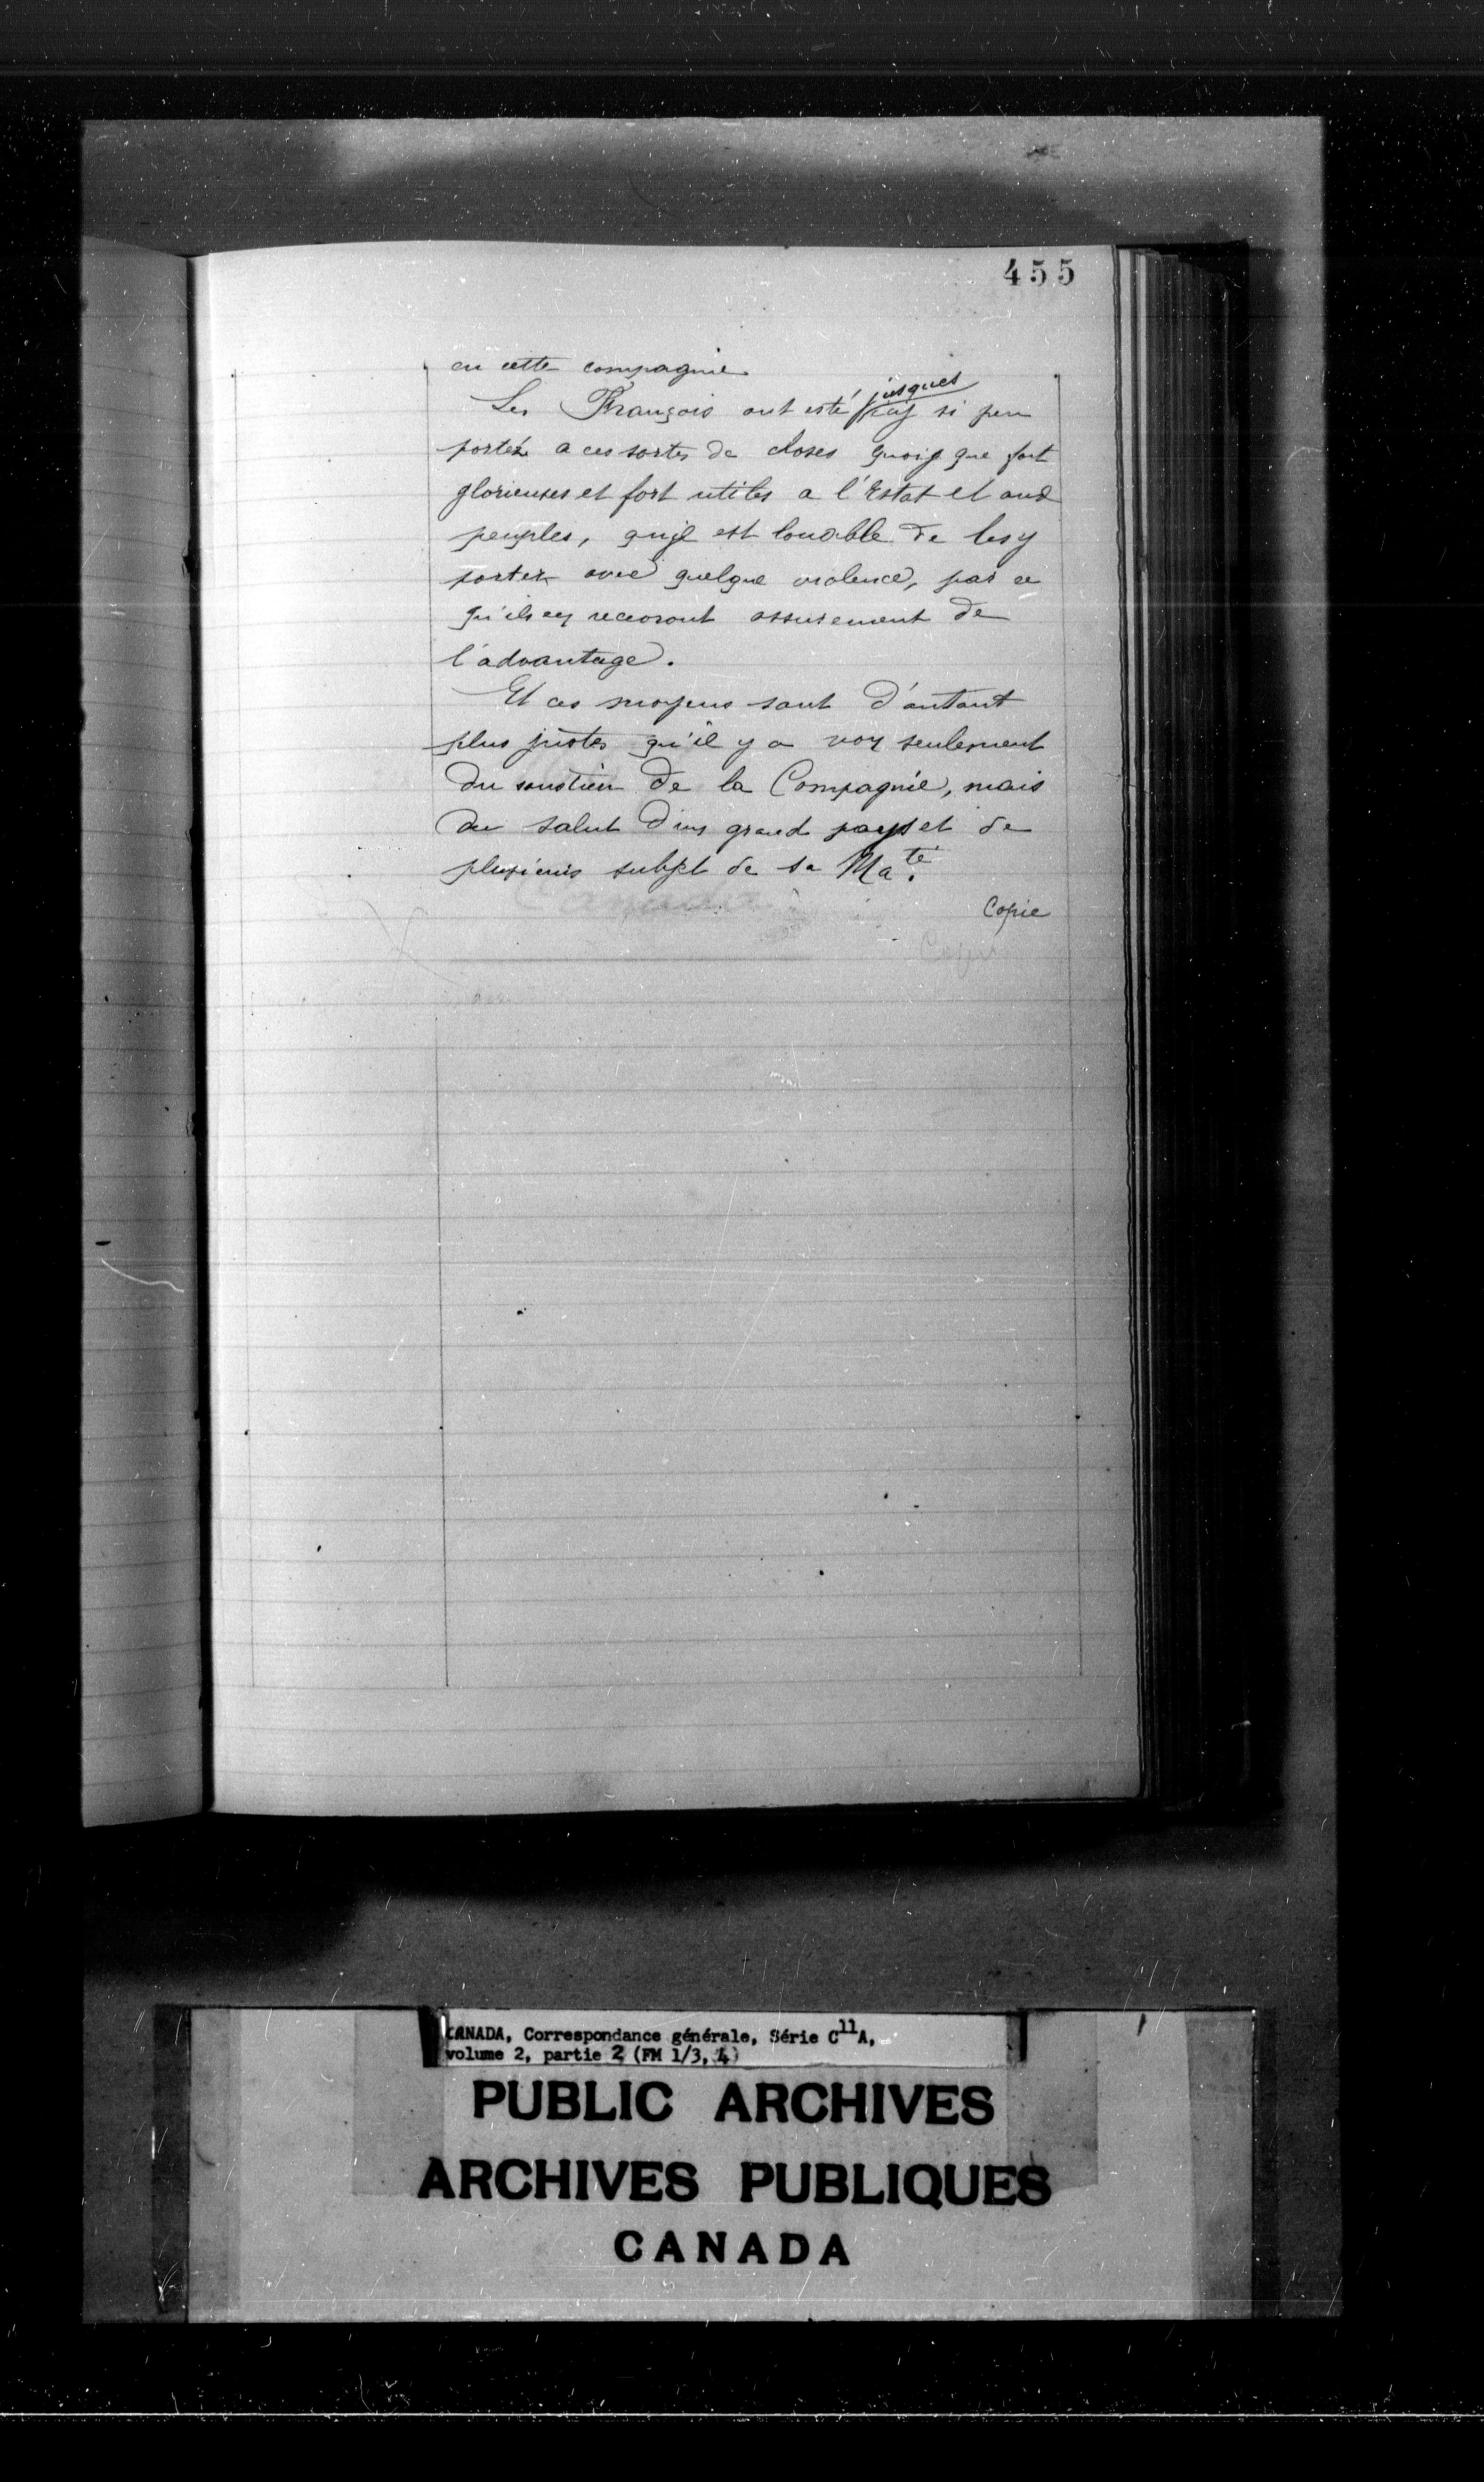 455
en cette compagnie
Les François ont esté jusques icy si peu
portéz a ces sortes de choses quoiq que fort
glorieuses et fort utiles a l'Estat et aux
peuples, qu'jl est louable de les y
porter avec quelque violence, par ce
qu'ils en recevront assurement de
l'advantage.
Et ces moyens sont d'autant
plus justes qu'il y a non seulement
du soustien de la Compagnie, mais
du salut d'un grand pays et de
plusieurs subjet de sa Maté.
Copie
CANADA, Correspondance générale, Série C11A,
volume 2, partie 2 (FM 1/3, 4)
PUBLIC ARCHIVES
ARCHIVES PUBLIQUES
CANADA